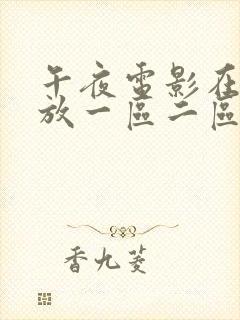 午夜電影在
放一區二區
香九菱